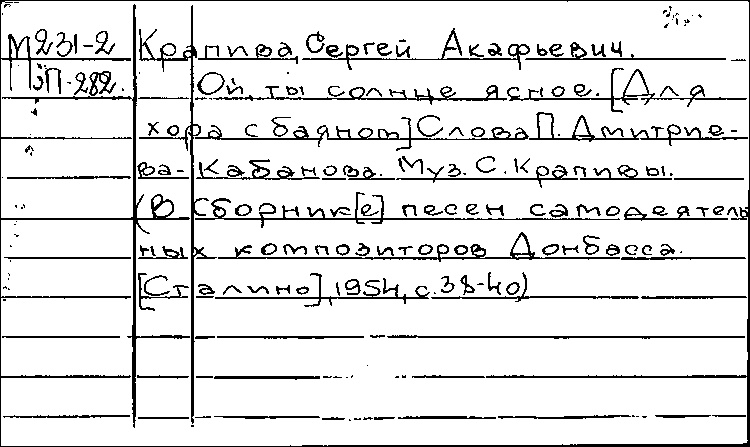 М231-2 Крапива, Сергей Акафьевич.
ЭП-282. Ой, ты солнце ясное. [Для
хора с баяном] Слова П. Дмитрие-
ва-Кабанова. Муз. С. Крапивы.
(В сборник[е] песен самодеятель
ных композиторов Донбасса.
[Сталино], 1954, с. 38-40)